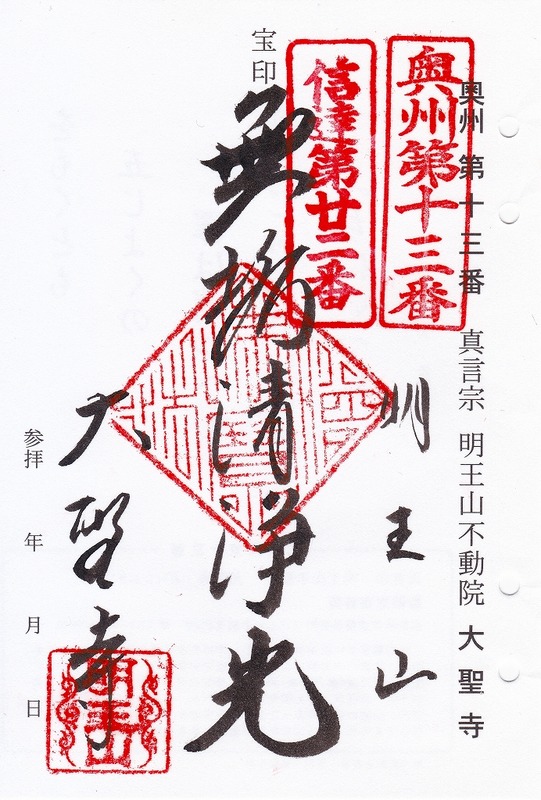 奥州 第十三番 真言宗 明王山不動院 大聖寺
奥州第十三番
信達第廿二番
宝印
明王山
無垢清浄光
大聖寺
明王山
参拝 年 月 日